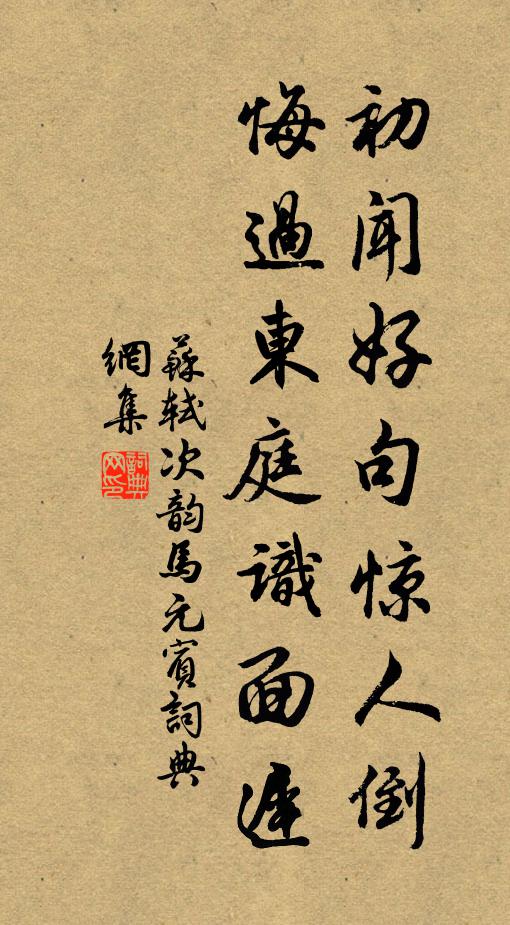 初闻好句惊人倒
悔過東庭識面遲
蘇軾次韵馬元賓詞典
網集
詞典
网印